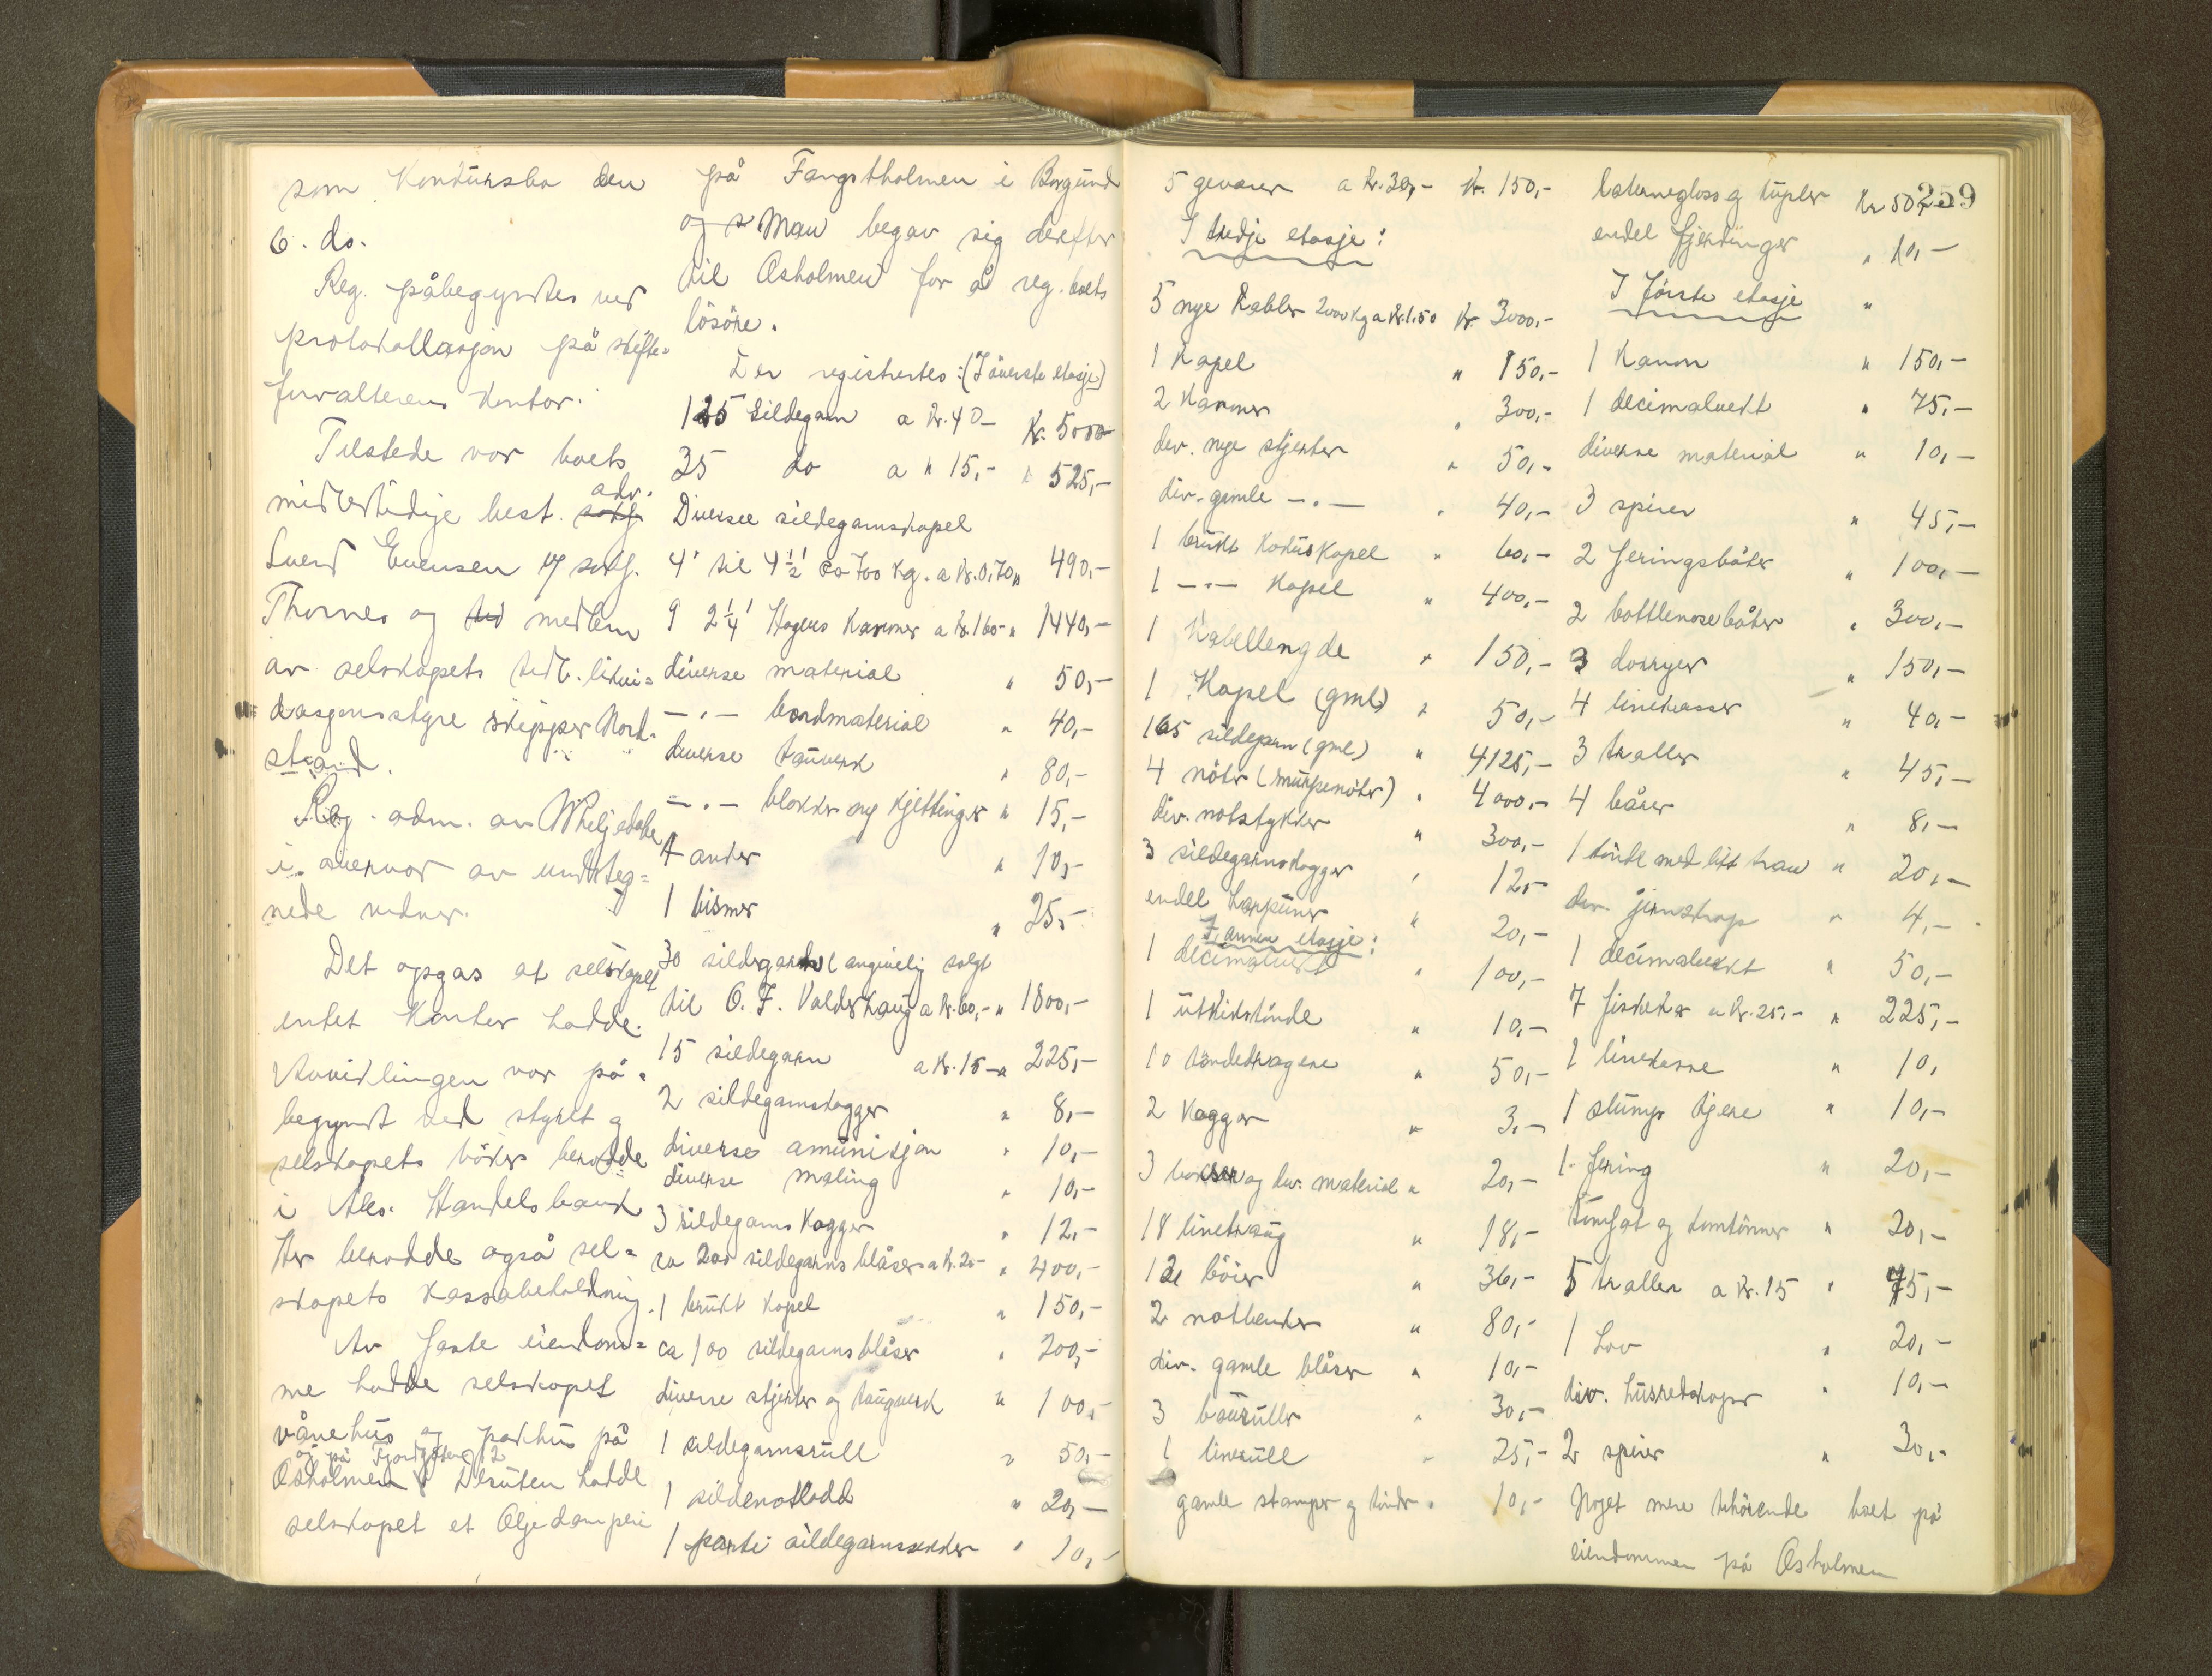 som Konkursbo den
6. ds.
Reg. påbegyndtes ved
protokollasjon på skifte=
forvalterens Kontor.
Tilstede var boets
adv.
midlertidige best.
Svend Evensen og sakf.
Thornes og medlem
av selskapets tidl. likvi=
dasjonsstyre skipper Nord=
strand.
Reg. adm. av
i overvær av underteg=
nede vidner.
Det opgas at selskapet
intet Kontor hadde.
Avviklingen var på=
begyndt ved styret og
selskapets böker beroddde
i Ales. Handelsbank
Her berodde også sel=
skapets Kassabeholdning.
Av faste eiendom=
me hadde selskapet
vånehus og pakhus på
og på Fjordgaten 12
Osholmen Desuten hadde
selskapet et Oljedamperi
på Fangstholmen i Borgund
og Man begav sig derefter
til Osholmen for å reg. boets
lösöre.
Der registrertes: (I överste etasje)
125 Sildegarn a Kr. 40- Kr. 5000
35 do a " 15,- " 525,-
Diverse sildegarnskapel
4' til 4 1/2' ca 700 Kg. a Kr. 0,70 " 490,-
9 2 1/4' Hagens Kanoner a Kr. 160- " 1440,-
diverse material " 50,-
-"- bordmaterial " 40,-
diverse tauverk " 80,-
-"- blokker og Kjettinger " 15,-
4 anker " 10,-
1 bismer " 25,-
30 sildegarn (angivelig solgt
til O. F. Valderhaug a Kr. 60,- " 1800,-
15 sildegarn a Kr. 15- " 225,-
2 sildegarnskagger " 8,-
diverse amunisjon " 10,-
diverse maling " 10,-
3 sildegarns Kagger " 12,-
ca 200 sildegarns blåser a Kr. 20- " 400,-
1 brukt Kapel " 150,-
ca 100 sildegarnsblåser " 200,-
diverse stjerter og taugverk " 100,-
1 sildegarnsrull " 50,-
1 sildenotlodd " 20,-
1 parti sildegarnssekker " 10,-
5 geværer a Kr. 30,- Kr. 150,-
I tredje etasje:
5 nye Kabler 2000 Kg a Kr. 1.50 Kr. 3000,-
1 Kapel " 150,-
2 Kanoner " 300,-
div. nye stjerter " 50,-
div. gamle -"- " 40,-
1 brukt Kokus Kapel " 60,-
1 -"- Kapel " 400,-
1 Kabellengde " 150,-
1 Kapel (gml) " 50,-
165 sildegarn (gml) " 4125,-
4 nöter (snurpenöter) " 4000,-
div. notstykker " 300,-
3 sildegarnskagger " 12,-
endel harpuner " 20,-
I annen etasje:
1 decimalvekt " 100,-
1 utkikstönde " 10,-
10 töndedragere " 50,-
2 Kagger " 3,-
3 og div. material " 20,-
18 linetraug " 18,-
12 böier " 36,-
2 notbenker " 80,-
div. gamle blåser " 10,-
3 bauruller " 30,-
1 linerull " 25,-
gamle stamper og tönder " 10,-
259
Laterneglass og kupler Kr 50,-
endel fjerdinger " 10,-
I förste etasje "
1 Kanon " 150,-
1 decimalvekt " 75,-
diverse material " 10,-
3 spirer " 45,-
2 feringsbåter " 100,-
2 bottlenosebåter " 300,-
3 dorryer " 150,-
4 linekasser " 40,-
3 traller " 45,-
4 bårer " 8,-
1 tönde med litt tran " 20,-
div. jernskrap " 4,-
1 decimalvekt " 50,-
7 fiskekar a Kr. 25,- " 225,-
1 linekasse " 10,
1 slump tjære " 10,-
1 fering " 20,-
Tomfat og tomtönner " 20,-
5 traller a Kr. 15 " 75,-
1 Lov " 20,-
div. husredskaper " 10,-
2 spirer " 30,-
Noget mere tilhörende boet på
eiendommen på Osholmen